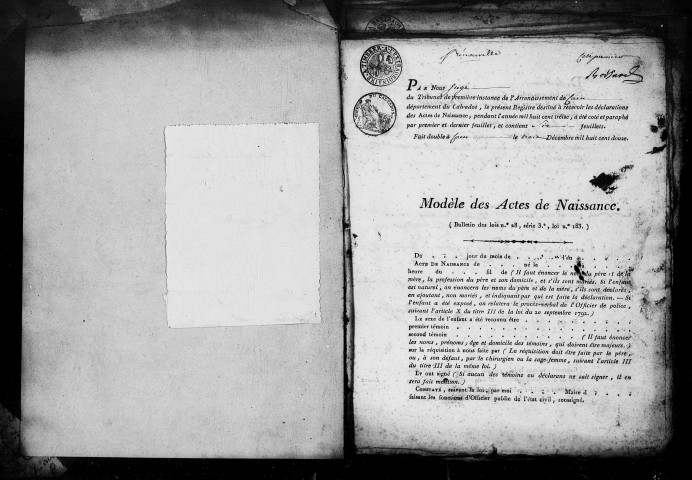 PAR Nous Juge
du Tribunal de première instance de l'Arrondissement de Caen
département du Calvados, le présent Registre destiné à recevoir les déclarations
des Actes de Naissance, pendant l'année mil huit cent treize, a été coté et paraphé
par premier et dernier feuillet, et contient feuillets.
Fait double à Caen le trois Décembre mil huit cent douze.
Modèle des Actes de Naissance.
( Bulletin des lois n.º 28, série 3.e, loi n.º 183. )
DU . . . jour du mois de . . . l'an
ACTE DE NAISSANCE de . . . né le . . .
heure du . . . fil de ( Il faut énoncer le nom du père et de la
mère, la profession du père et son domicile, et s'ils sont mariés. Si l'enfant
est naturel, on énoncera les noms du père et de la mère, s'ils sont déclarés,
en ajoutant, non mariés, et indiquant par qui est faite la déclaration. — Si
l'enfant a été exposé, on relatera le procès-verbal de l'Officier de police,
suivant l'article X du titre III de la loi du 20 septembre 1792.)
Le sexe de l'enfant a été reconnu être . . .
premier témoin . . .
second témoin . . . ( Il faut énoncer
les noms, prénoms, âge et domicile des témoins, qui doivent être majeurs.)
sur la réquisition à nous faite par ( La réquisition doit être faite par le père,
ou, à son défaut, par le chirurgien ou la sage-femme, suivant l'article III
du titre III de la même loi. )
Et ont signé ( Si aucun des témoins ou déclarans ne sait signer, il en
sera fait mention. )
CONSTATÉ, suivant la loi, par moi . . . Maire d . . .
faisant les fonctions d'Officier public de l'état civil, soussigné.